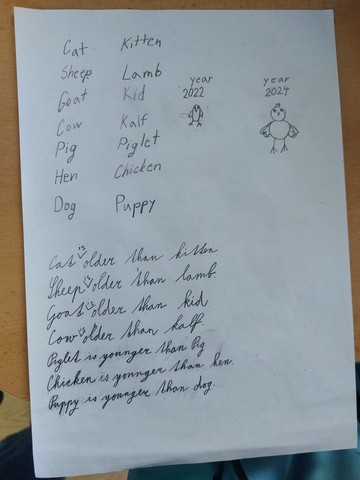 Cat Kitten
Sheep Lamb
Goat Kid
Cow Kalf
Pig Piglet
Hen Chicken
Dog Puppy
year 2022
year 2024
Cat is older than kitten
Sheep is older than lamb
Goat is older than kid
Cow is older than kalf.
Piglet is younger than Pig
Chicken is younger than hen.
Puppy is younger than dog.